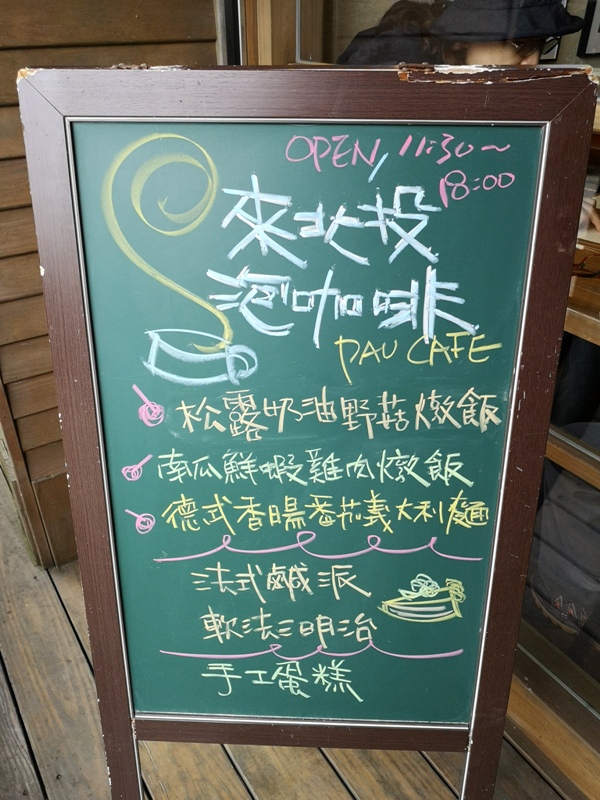 OPEN, 11:30~
18:00
來北投
泡咖啡
PAU CAFE
松露奶油野菇燉飯
南瓜鮮蝦雞肉燉飯
德式香腸番茄義大利麵
法式鹹派
軟法三明治
手工蛋糕